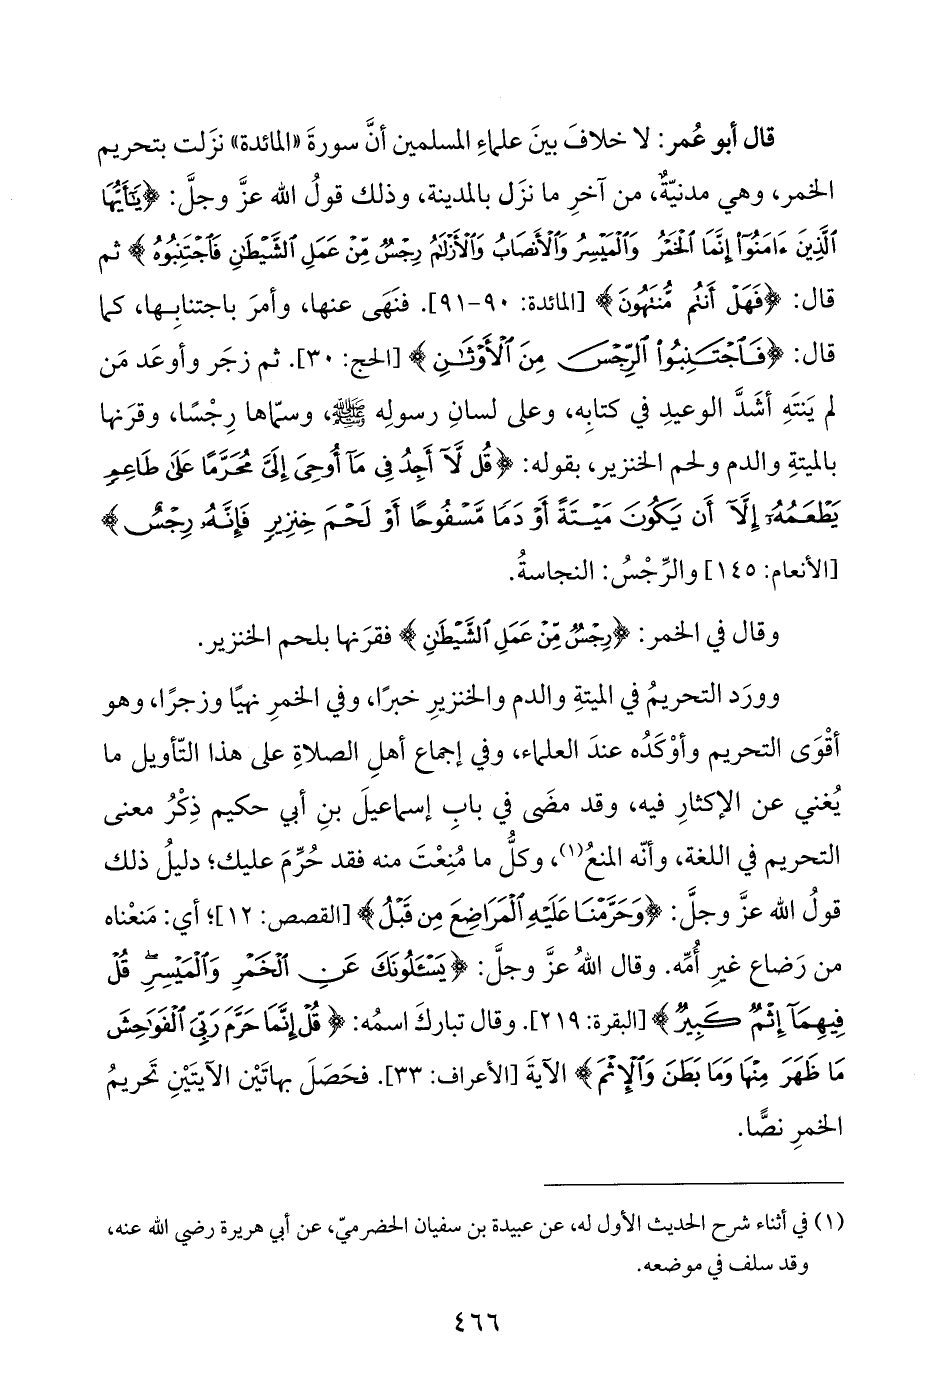 قال أبو عُمر: لا خلافَ بينَ علماءِ المسلمين أنَّ سورةَ «المائدة» نزَلت بتحريم
الخمر، وهي مدنيّةٌ، من آخرِ ما نزَل بالمدينة، وذلك قولُ الله عزَّ وجلَّ: ﴿يَٰٓأَيُّهَا
ٱلَّذِينَ ءَامَنُوٓاْ إِنَّمَا ٱلْخَمْرُ وَٱلْمَيْسِرُ وَٱلْأَنصَابُ وَٱلْأَزْلَٰمُ رِجْسٌ مِّنْ عَمَلِ ٱلشَّيْطَٰنِ فَٱجْتَنِبُوهُ﴾ ثم
قال: ﴿فَهَلْ أَنتُم مُّنتَهُونَ﴾ [المائدة: ٩٠-٩١]. فنَهَى عنها، وأمرَ باجتنابِها، كما
قال: ﴿فَٱجْتَنِبُواْ ٱلرِّجْسَ مِنَ ٱلْأَوْثَٰنِ﴾ [الحج: ٣٠]. ثم زجَر وأوعَد مَن
لم يَنتَهِ أشَدَّ الوعيدِ في كتابِه، وعلى لسانِ رسولِه ﷺ، وسمّاها رِجْسًا، وقرَنها
بالميتةِ والدم ولحم الخنزير، بقوله: ﴿قُل لَّآ أَجِدُ فِى مَآ أُوحِىَ إِلَىَّ مُحَرَّمًا عَلَىٰ طَاعِمٍ
يَطْعَمُهُۥٓ إِلَّآ أَن يَكُونَ مَيْتَةً أَوْ دَمًا مَّسْفُوحًا أَوْ لَحْمَ خِنزِيرٍ فَإِنَّهُۥ رِجْسٌ﴾
[الأنعام: ١٤٥] والرِّجْسُ: النجاسةُ.
وقال في الخمر: ﴿رِجْسٌ مِّنْ عَمَلِ ٱلشَّيْطَٰنِ﴾ فقرَنها بلحم الخنزير.
وورَد التحريمُ في الميتةِ والدم والخنزيرِ خبرًا، وفي الخمرِ نهيًا وزجرًا، وهو
أقْوَى التحريم وأوْكَدُه عندَ العلماء، وفي إجماع أهلِ الصلاةِ على هذا التّأويل ما
يُغني عن الإكثارِ فيه، وقد مضَى في بابِ إسماعيلَ بنِ أبي حكيم ذِكْرُ معنى
التحريم في اللغة، وأنّه المنعُ(١)، وكلُّ ما مُنِعْتَ منه فقد حُرِّمَ عليك؛ دليلُ ذلك
قولُ الله عزَّ وجلَّ: ﴿وَحَرَّمْنَا عَلَيْهِ ٱلْمَرَاضِعَ مِن قَبْلُ﴾ [القصص: ١٢]؛ أي: مَنعْناه
من رَضاع غيرِ أُمِّه. وقال اللهُ عزَّ وجلَّ: ﴿يَسْـَٔلُونَكَ عَنِ ٱلْخَمْرِ وَٱلْمَيْسِرِ ۖ قُلْ
فِيهِمَآ إِثْمٌ كَبِيرٌ﴾ [البقرة: ٢١٩]. وقال تبارك اسمُه: ﴿قُلْ إِنَّمَا حَرَّمَ رَبِّىَ ٱلْفَوَٰحِشَ
مَا ظَهَرَ مِنْهَا وَمَا بَطَنَ وَٱلْإِثْمَ﴾ الآيةَ [الأعراف: ٣٣]. فحَصَلَ بهاتَيْن الآيتَيْنِ تَحريمُ
الخمرِ نصًّا.
(١) في أثناء شرح الحديث الأول له، عن عبيدة بن سفيان الحضرميّ، عن أبي هريرة رضي الله عنه،
وقد سلف في موضعه.
٤٦٦